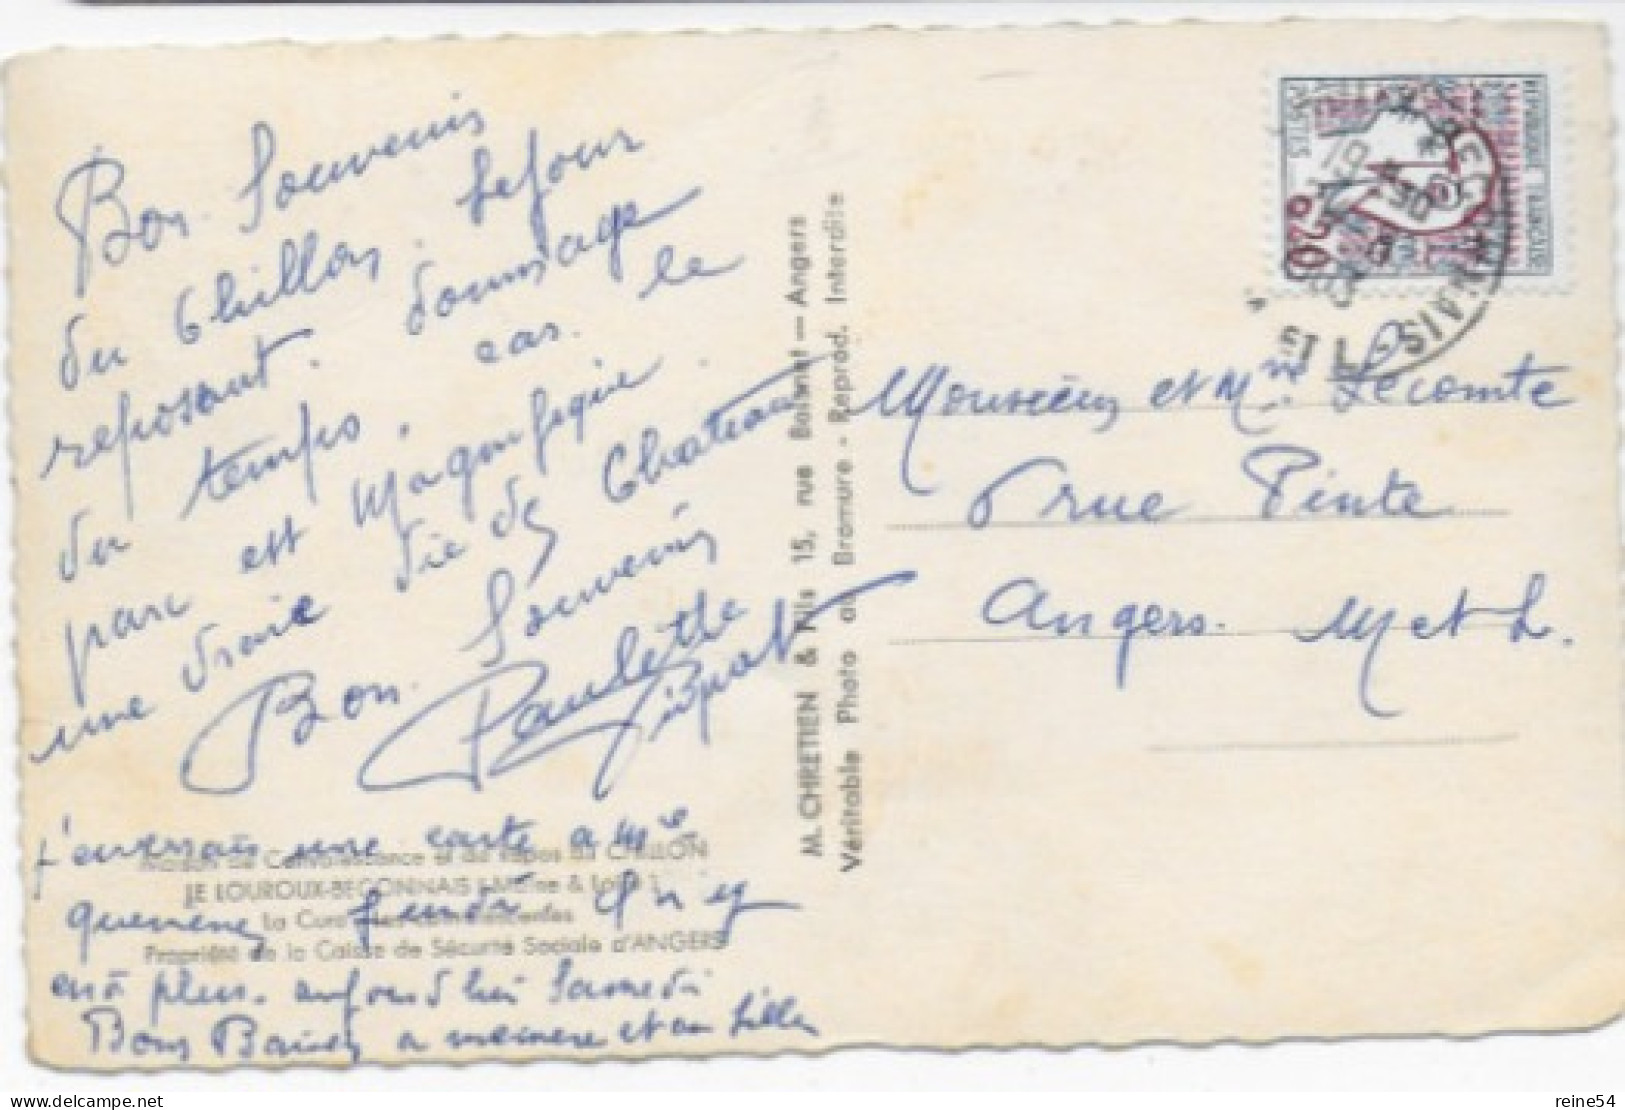 Bon Souvenir
du Chillon. Sejour
reposant. dommage
du temps. car. le
parc est Magnifique
une vraie vie de Chateau
Bon Souvenir
Paulette
J'enverrais une carte a Mme
Lundi. Il n'y
en a plus. aujourd'hui Samedi
Bons Baisers a memere et au filles
Maison de Convalescence et de Repos du CHILLON
LE LOUROUX-BECONNAIS (Maine & Loire)
La Cure des Convalescentes
Propriété de la Caisse de Sécurité Sociale d'ANGERS
M. CHRETIEN & Fils 15, rue Boisnet — Angers
Véritable Photo au Bromure - Reprod. Interdite
REPUBLIQUE FRANÇAISE
POSTES
0,20
Monsieur et Mme Lecomte
6 rue Pinte
Angers. M et L.
reine54